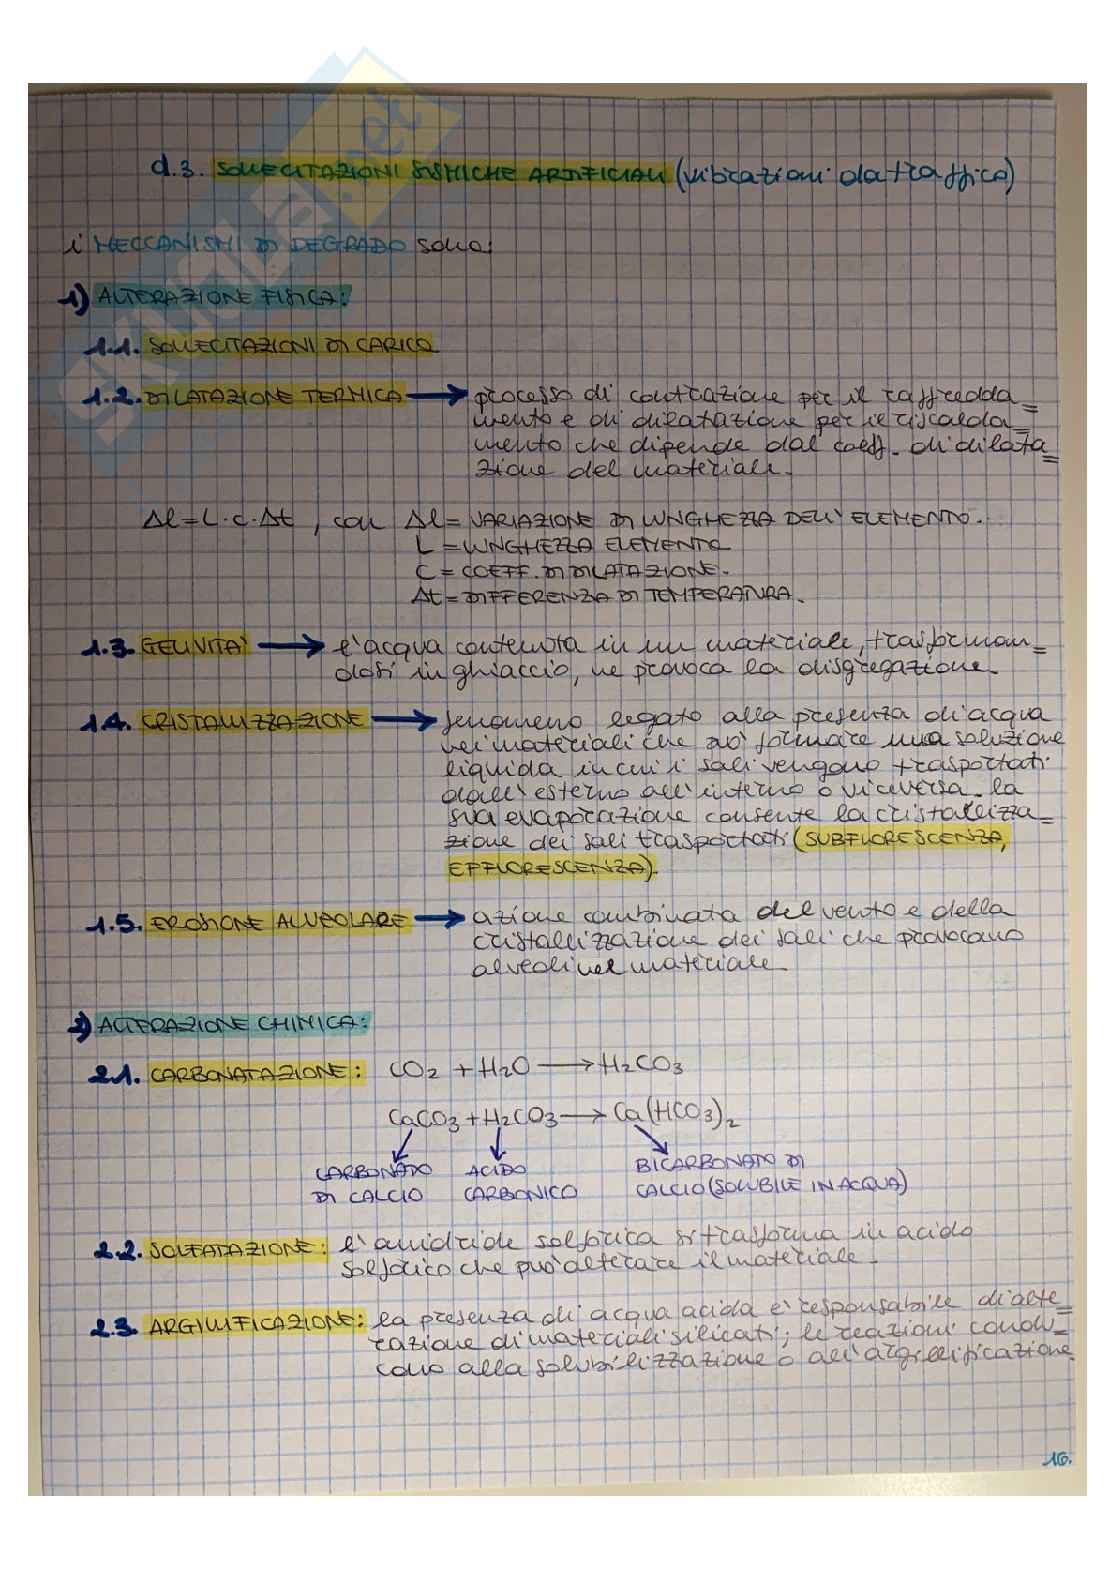 d.3. SOLLECITAZIONI SISMICHE ARTIFICIALI (vibrazioni da traffico)
i MECCANISMI DI DEGRADO sono:
1) ALTERAZIONE FISICA:
1.1. SOLLECITAZIONI DI CARICO
1.2. DILATAZIONE TERMICA → processo di contrazione per il raffredda=
mento e di dilatazione per il riscalda=
mento che dipende dal coeff. di dilata=
zione del materiale.
Δl = L · c · Δt , con Δl = VARIAZIONE DI LUNGHEZZA DELL'ELEMENTO.
L = LUNGHEZZA ELEMENTO
C = COEFF. DI DILATAZIONE.
Δt = DIFFERENZA DI TEMPERATURA.
1.3. GELIVITA' → l'acqua contenuta in un materiale, trasforman=
dosi in ghiaccio, ne provoca la disgregazione.
1.4. CRISTALLIZZAZIONE → fenomeno legato alla presenza di acqua
nei materiali che può formare una soluzione
liquida in cui i sali vengono trasportati
dall'esterno all'interno o viceversa. la
sua evaporazione consente la cristallizza=
zione dei sali trasportati (SUBFLORESCENZA,
EFFLORESCENZA).
1.5. EROSIONE ALVEOLARE → azione combinata del vento e della
cristallizzazione dei sali che provocano
alveoli nel materiale.
2) ALTERAZIONE CHIMICA:
2.1. CARBONATAZIONE: CO₂ + H₂O → H₂CO₃
CaCO₃ + H₂CO₃ → Ca(HCO₃)₂
CARBONATO ACIDO BICARBONATO DI
DI CALCIO CARBONICO CALCIO (SOLUBILE IN ACQUA)
2.2. SOLFATAZIONE: l'anidride solforica si trasforma in acido
solforico che può alterare il materiale.
2.3. ARGILLIFICAZIONE: la presenza di acqua acida è responsabile di alte=
razione di materiali silicati; le reazioni condu=
cono alla solubilizzazione o all'argillificazione.
16.
SKUOLA.net